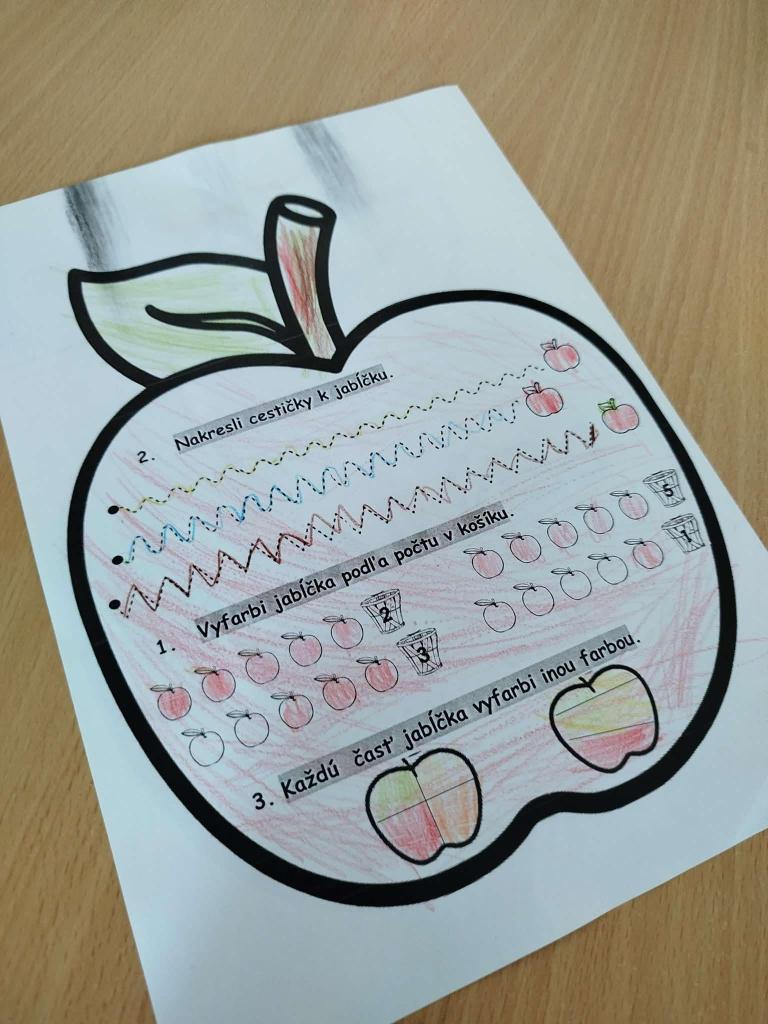 2. Nakresli cestičky k jabĺčku.
1. Vyfarbi jabĺčka podľa počtu v košíku.
5
1
2
3
3. Každú časť jabĺčka vyfarbi inou farbou.